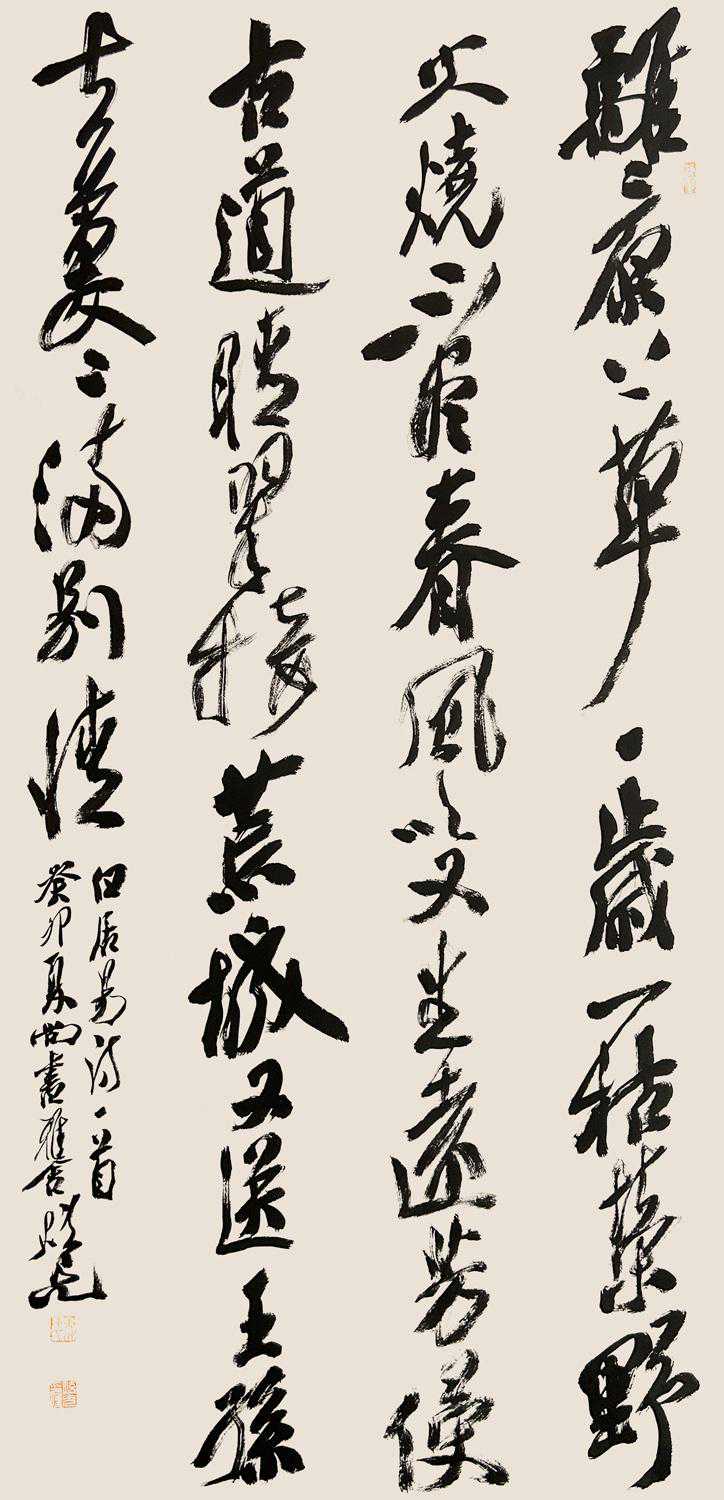 離〻原上草一歲一枯榮野
火燒不尽春風吹又生遠芳侵
古道晴翠接荒城又送王孫
去萋〻滿別情
白居易詩一首
癸卯夏尚書雅舍